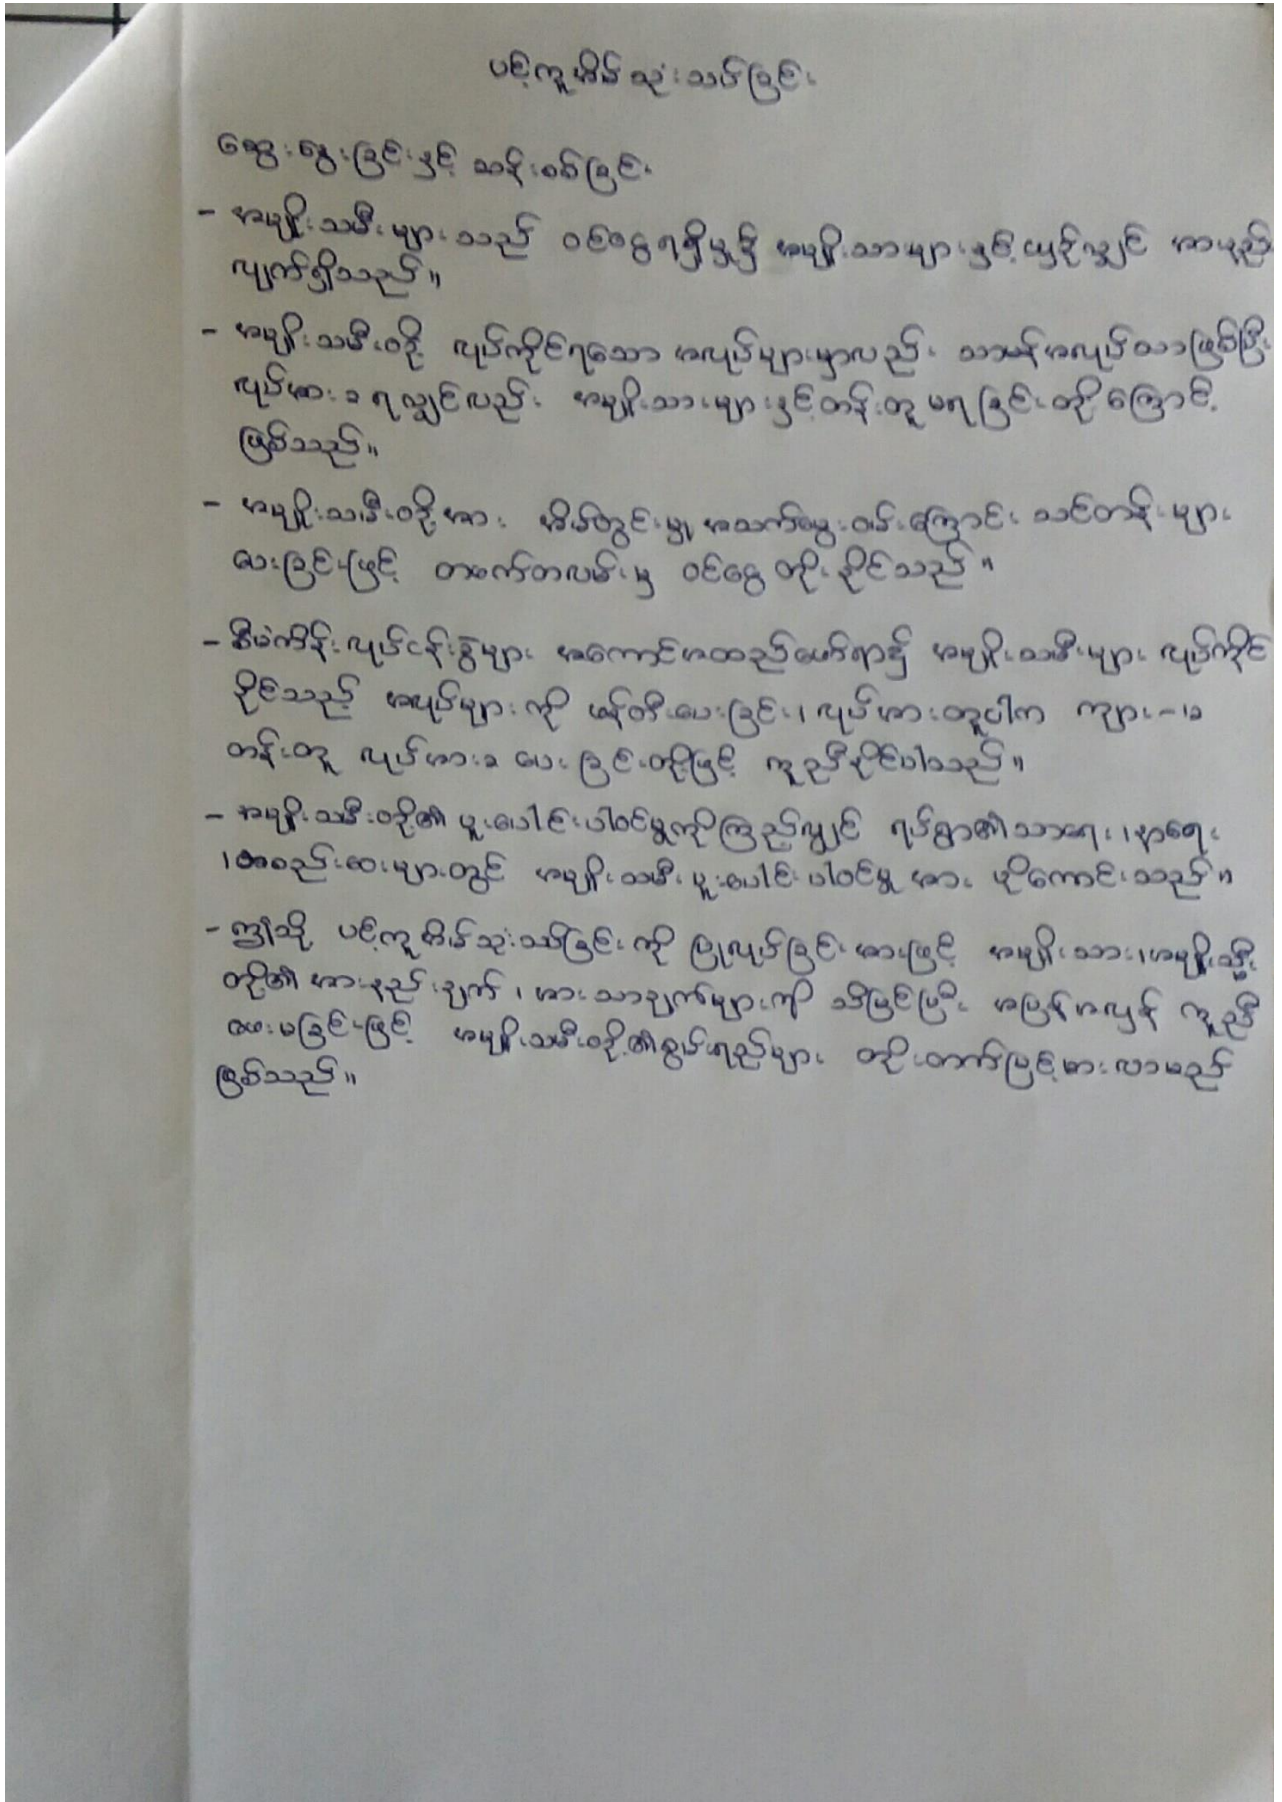 ပင့်ကူအိမ်သုံးသပ်ခြင်း
ဆွေးနွေးခြင်းနှင့် ဆန်းစစ်ခြင်း
- အမျိုးသမီးများသည် ဝင်ငွေရရှိမှု၌ အမျိုးသားများနှင့်ယှဉ်လျှင် အားနည်း
လျက်ရှိသည်။
- အမျိုးသမီးတို့ လုပ်ကိုင်ရသော အလုပ်များမှာလည်း သာမန်အလုပ်သာဖြစ်ပြီး
လုပ်အားခရလျှင်လည်း အမျိုးသားများနှင့်တန်းတူမရခြင်းတို့ကြောင့်
ဖြစ်သည်။
- အမျိုးသမီးတို့အား အိမ်တွင်းမှု အသက်မွေးဝမ်းကြောင်း သင်တန်းများ
ပေးခြင်းဖြင့် တဖက်တလမ်းမှ ဝင်ငွေတိုးနိုင်သည်။
- စီမံကိန်းလုပ်ငန်းခွဲများ အကောင်အထည်ဖော်ရာ၌ အမျိုးသမီးများ လုပ်ကိုင်
နိုင်သည့် အလုပ်များကို ဖန်တီးပေးခြင်း၊ လုပ်အားတူပါက ကျား-၊ခ
တန်းတူ လုပ်အားခပေးခြင်းတို့ဖြင့် ကူညီနိုင်ပါသည်။
- အမျိုးသမီးတို့၏ ပူးပေါင်းပါဝင်မှုကိုကြည့်လျှင် ရပ်ရွာ၏သာရေး၊နာရေး
၊အစည်းဝေးများတွင် အမျိုးသမီးပူးပေါင်းပါဝင်မှု အား ပိုကောင်းသည်။
- ဤသို့ ပင့်ကူအိမ်သုံးသပ်ခြင်းကို ပြုလုပ်ခြင်းအားဖြင့် အမျိုးသား၊အမျိုးသ္မီး
တို့၏ အားနည်းချက်၊ အားသာချက်များကို သိမြင်ပြီး အပြန်အလှန် ကူညီ
ဖေးမခြင်းဖြင့် အမျိုးသမီးတို့၏စွမ်းရည်များ တိုးတက်မြင့်မားလာမည်
ဖြစ်သည်။